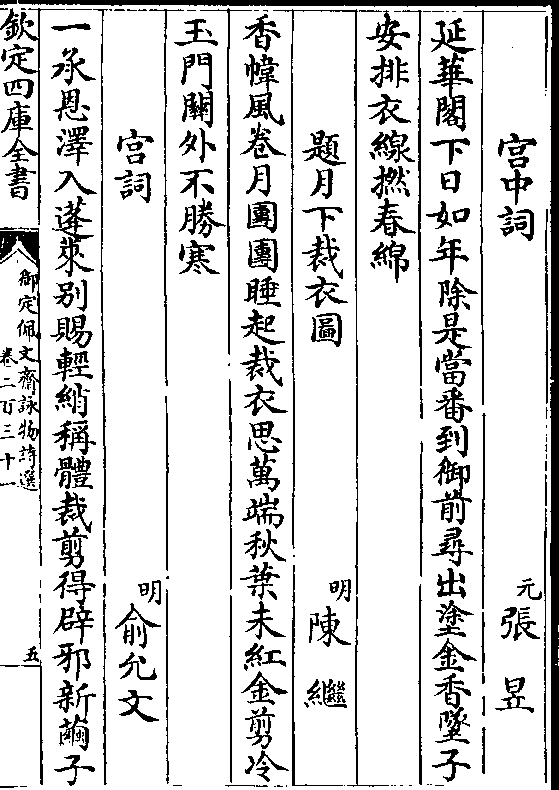 宫中詞 元張昱
延華閣下日如年除是當番到御前尋出塗金香墜子
安排衣線撚春綿
題月下裁衣圖 明陳繼
香幃風卷月團團睡起裁衣思萬端秋葉未紅金剪冷
玉門關外不勝寒
宫詞 明俞允文
一承恩澤入蓬萊别賜輕綃稱體裁剪得辟邪新繭子
欽定四庫全書
御定佩文齋詠物詩選
卷二百三十一
五